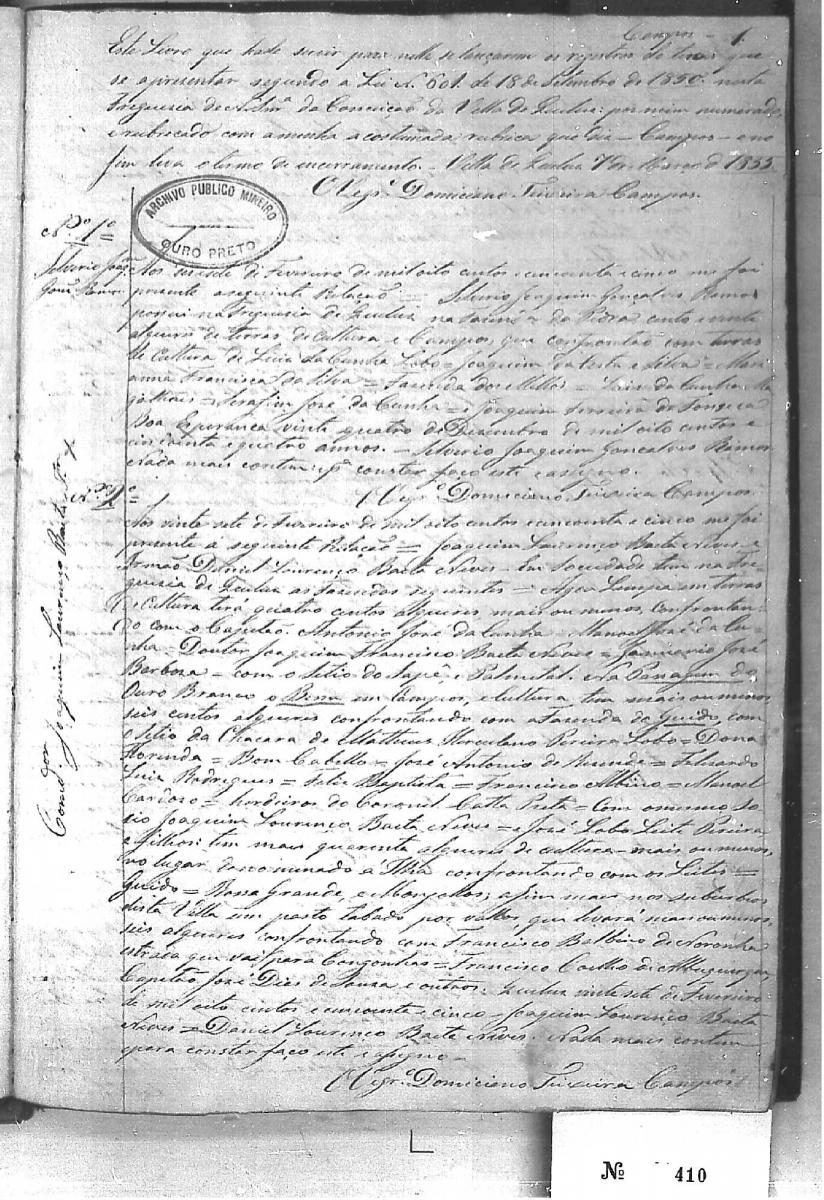 Campos 1.
Este Livro que hade servir para nelle se lançarem os registros de terras que
se apresentar segundo a Lei N. 601. de 18 de Setembro de 1850. nesta
Freguesia de N. Snrª da Conceição da Villa de Queluz: por mim numerado,
e rubricado com a minha acostumada rubrica que diz – Campos – e no
fim leva o termo de encerramento. – Villa de Queluz de Março de 1855
O Vigrº Domiciano Teixeira Campos.
ARCHIVO PUBLICO MINEIRO
OURO PRETO
Nº 1º
Silverio Joaqm
Gonz Ramos
Aos de Fevereiro de mil oito centos e cincoenta e cinco me foi
presente a seguinte Relação = Silverio Joaquim Gonçalves Ramos
possui na Freguesia de Queluz na da Pedra cento e vinte
alqueires de terras de cultura e Campos, que confrontão com terras
de cultura de da Cunha Lobo = Joaquim da Costa e Silva = Mari
anna Francisca da Silva = Fazenda dos Mellos = da Cunha Ma
galhães = Serafim José da Cunha = e Joaquim Ferreira da Fonseca
Boa Esperança vinte quatro de Dezembro de mil oito centos e
cincoenta e quatro annos. – Silverio Joaquim Gonçalves Ramos
Nada mais contem e pª constar faço este e assigno.
O Vigrº Domiciano Teixeira Campos.
Nº 2º
Comdor Joaquim Lourenço Baeta
Aos vinte sete de Fevereiro de mil oito centos e cincoenta e cinco me foi
presente a seguinte Relação = Joaquim Lourenço Baeta Neves e
Irmão Daniel Lourenço Baeta Neves – Em Sociedade tem na Fre
guesia de Queluz as Fazendas seguintes = Agoa Limpa em terras
de Cultura terá quatro centos alqueires mais ou menos, confrontan
do com o Capitão Antonio José da Cunha = Manoel José da Cu
nha = Doutor Joaquim Francisco Baeta Neves = Januario José
Barbosa = com o Sitio do Sapê, e Palmital. Na Passagem do
Ouro Branco o em Campos, e Cultura tem mais ou menos
seis centos alqueires confrontando com a Fazenda do Guido, com
o Sitio da Chacara de Matheus Herculano Pereira Lobo = Dona
Florinda = Bom Cabello = José Antonio de Resende = Felisardo
Luis Rodrigues = Felis Baptista = Francisco Albino = Manoel
Cardoso = herdeiros do Coronel Catta Preta = Com o mesmo So
cio Joaquim Lourenço Baeta Neves = e José Lobo Leite Pereira,
e Filhos: tem mais quarenta alqueires de cultura – mais ou menos,
no lugar denominado a Ilha confrontando com os Leites =
Guido = Grande, e Monjolos; assim mais nos suburbios
desta Villa um pasto tabado por vallos, que levará mais ou menos,
seis alqueires confrontando com Francisco Balbino de Noronha
estrada que vai para Congonhas = Francisco Coelho de Albuquerque,
Capitão José Dias de Souza e outros: Queluz vinte sete de Fevereiro
de mil oito centos e cincoenta e cinco – Joaquim Lourenço Baeta
Neves = Daniel Lourenço Baeta Neves. Nada mais contem
e para constar faço este e assigno –
O Vigrº Domiciano Teixeira Campos
Nº 410